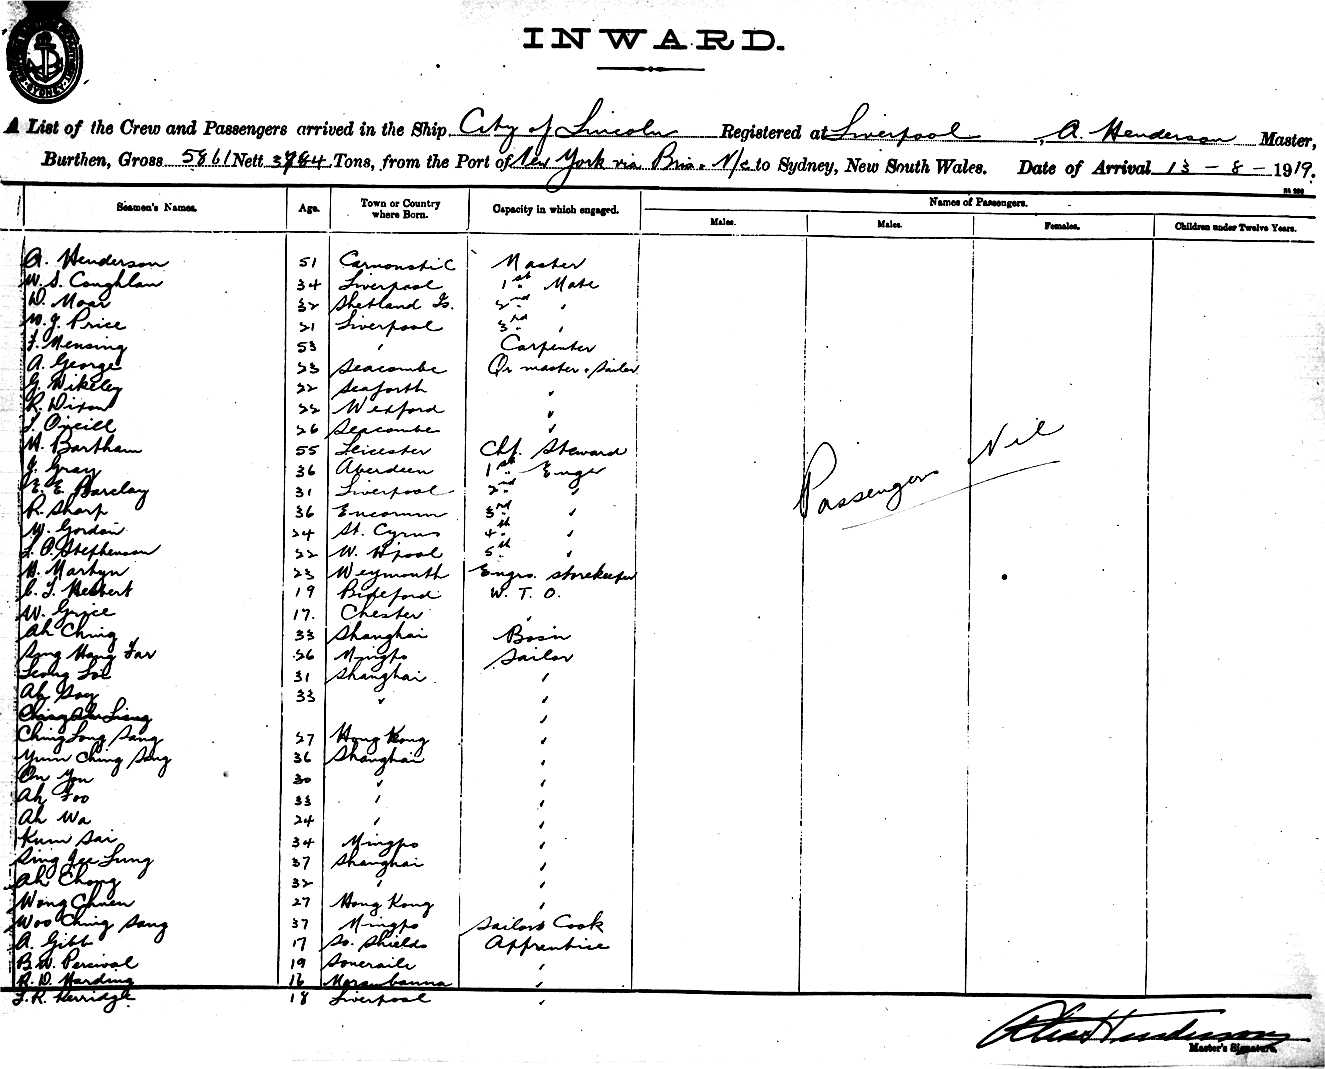 SYDNEY
INWARD.
A List of the Crew and Passengers arrived in the Ship City of Lincoln Registered at Liverpool, A. Henderson Master,
Burthen, Gross 5861 Nett 3764 Tons, from the Port of New York via Bris. N/c to Sydney, New South Wales. Date of Arrival 13 - 8 - 1919.
Names of Passengers.
Seamen's Names. Age. Town or Country where Born. Capacity in which engaged. Males. Males. Females. Children under Twelve Years.
A. Henderson 51 Carnoustie Master
W. S. Coughlan 34 Liverpool 1st Mate
D. Moar 32 Shetland Is. 2nd "
W. J. Price 21 Liverpool 3rd "
F. Mensing 53 " Carpenter
A. George 23 Seacombe Qr master & Sailor
G. Wikeley 22 Seaforth "
R. Dixon 22 Wexford "
T. O'neill 26 Seacombe "
M. Bartham 55 Leicester Chf. Steward
J. Gray 36 Aberdeen 1st Enger
E. E. Barclay 31 Liverpool 2nd "
R. Sharp 36 3rd "
W. Gordon 24 St. Cyrus 4th "
F. O. Stephenson 22 W. H'pool 5th "
H. Martyn 23 Weymouth Engrs. Storekeeper
C. T. Herbert 19 Bideford W. T. O.
W. Grice 17. Chester "
Ah Ching 33 Shanghai Bosn
Song Hang Far 26 Ningpo Sailor
Leong Loi 31 Shanghai "
Ah Soy 33 " "
"
Ching Long Sang 27 Hong Kong "
Yuen Ching Sang 36 Shanghai "
On You 30 " "
Ah Foo 33 " "
Ah Wa 24 " "
Kum Sai 34 Ningpo "
Sing Gee Lung 37 Shanghai "
Ah Chong 32 " "
Wong Chuen 27 Hong Kong "
Woo Ching Sang 37 Ningpo Sailors Cook
A. Gibb 17 So. Shields Apprentice
B. W. Percival 19 "
R. D. Harding 16
F. R. Kerridge 18 Liverpool "
Passengers Nil
Alex Henderson
Master's Signature.